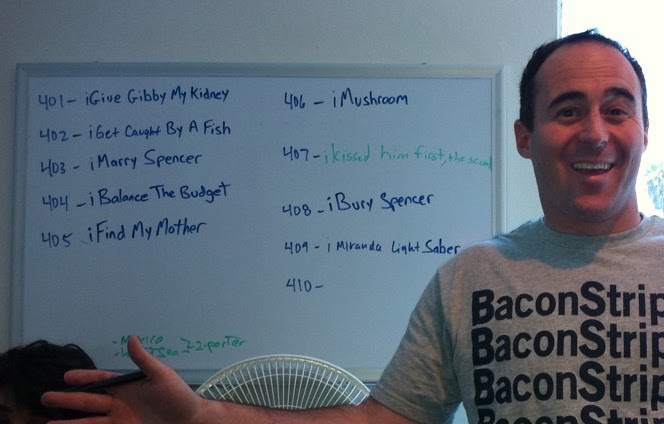 401 - iGive Gibby My Kidney
402 - iGet Caught By A Fish
403 - iMarry Spencer
404 - iBalance The Budget
405 - iFind My Mother
406 - iMushroom
407 - i kissed him first, the second
408 - iBury Spencer
409 - i Miranda Light Saber
410 -
2-porter
BaconStrip
BaconStrip
BaconStrip
BaconStrip